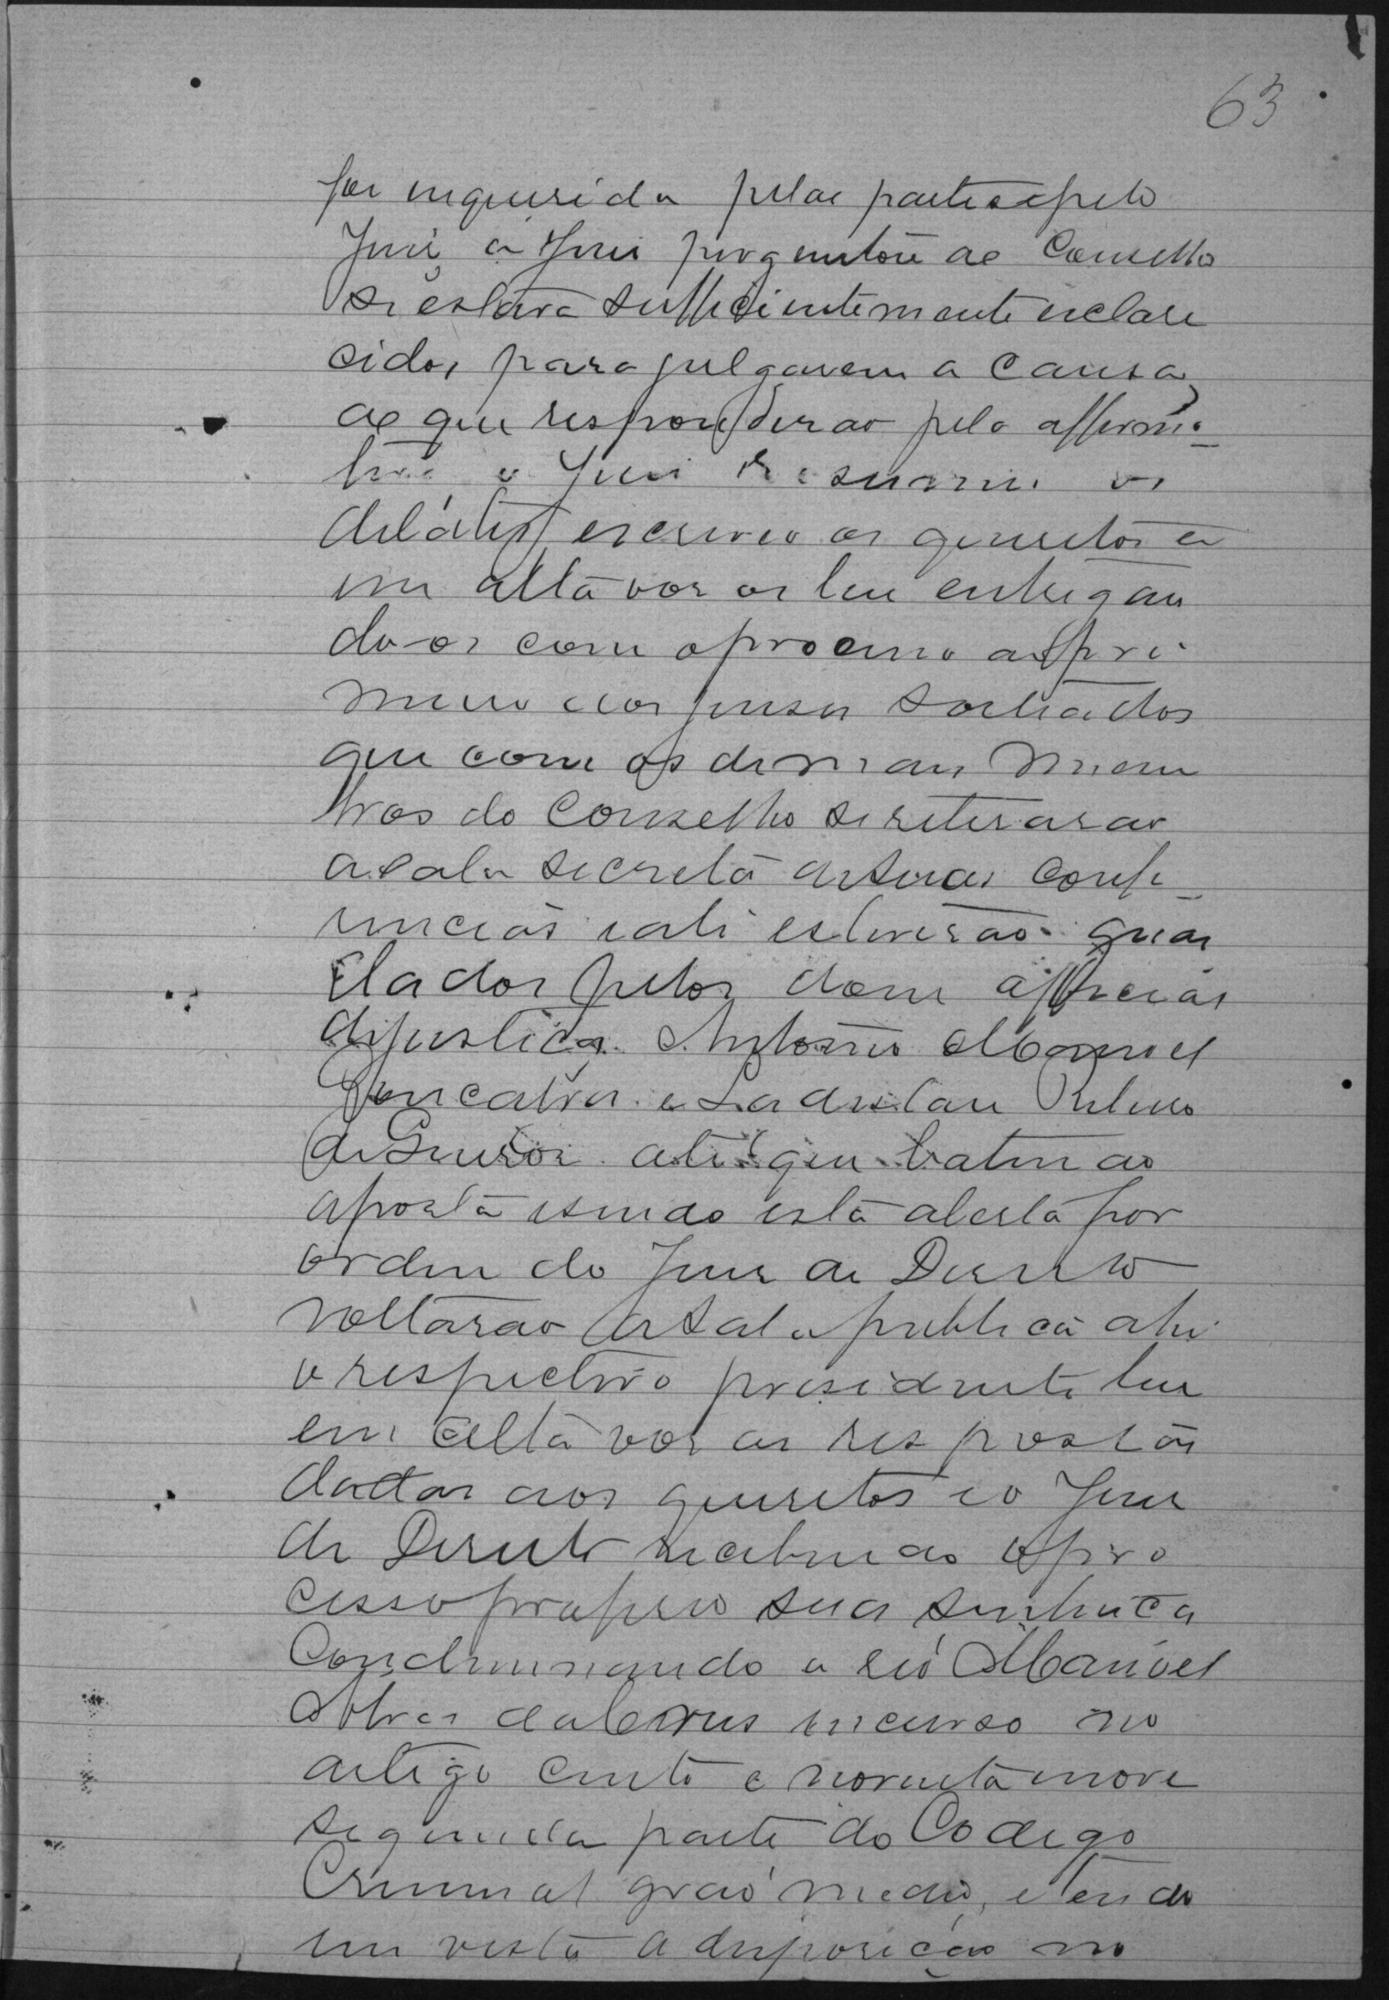 63
foi inquerida pelas partes e pelo
Juiz o Juiz perguntou ao Conselho
si estava sufficientemente esclare
cidos para julgarem a causa,
ao que responderao pela affirma-
tiva o Juiz resumiu os
debates escreveo os quesitos e
em alta voz os leu entregan
do-os com o processo ao pri
meiro dos juizes sorteados
que com os demais mem
bros do Conselho se retirarao
a sala secreta de suas confe-
rencias e ali estiverão guar
dados pelos dous officiaes
de justiça Antonio Manoel
Gonçalves e Ladislau
até que baterao
a porta e sendo esta aberta por
ordem do Juiz de Direito
voltarao a sala publica ahi
o respectivo presidente leu
em alta voz as respostas
dadas aos quesitos e o Juiz
de Direito recebendo o pro
cesso proferio sua sentença
Condemnando o reó Manoel
Alves incurso no
artigo cento e noventa e nove
segunda parte do Codigo
Criminal gráo medio, e tendo
em vista a disposição no